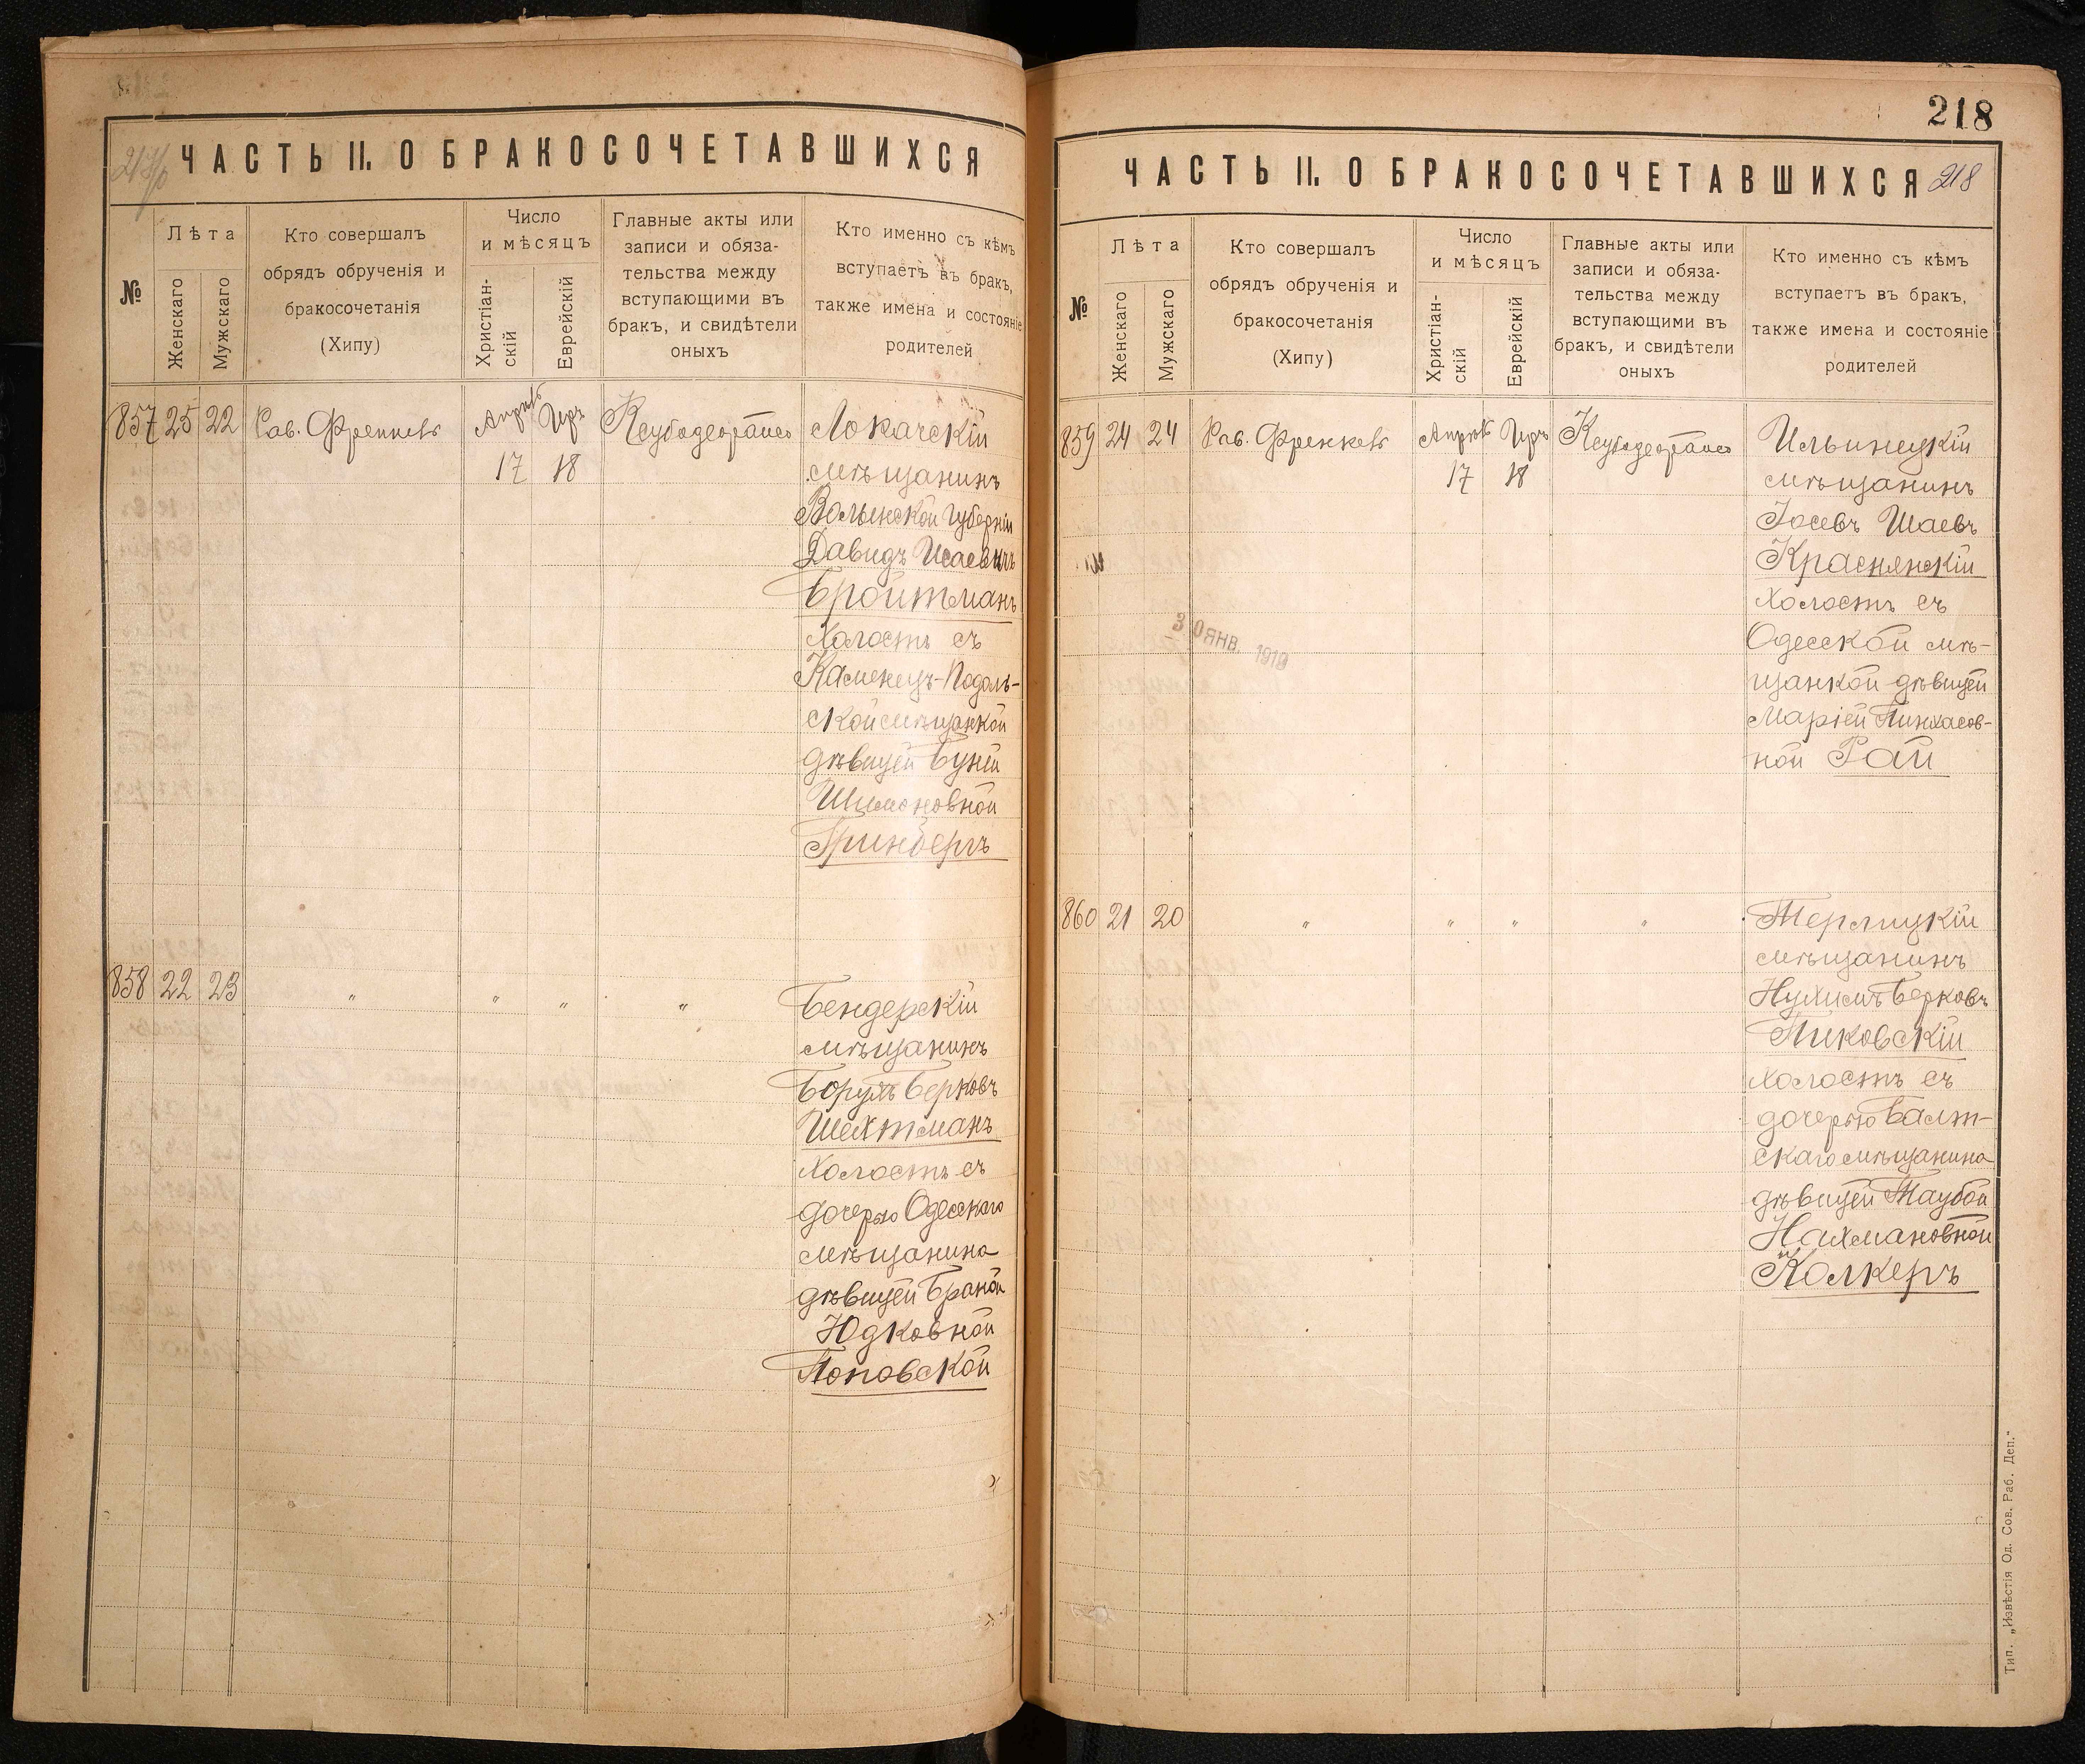 ЧАСТЬ II. О БРАКОСОЧЕТАВШИХСЯ
№
Лѣта
Женскаго
Мужскаго
Кто совершалъ
обрядъ обрученія и
бракосочетанія
(Хипу)
Число
и мѣсяцъ
Христіан-
скій
Еврейскій
Главные акты или
записи и обяза-
тельства между
вступающими въ
бракъ, и свидѣтели
оныхъ
Кто именно съ кѣмъ
вступаетъ въ бракъ,
также имена и состояніе
родителей
857 25 22 Рав. Френкель Апрѣль Iiръ Локачскій
17 18 мѣщанинъ
Волынской губерніи
Давидъ Исаевичъ
Бройтманъ
холостъ съ
Каменецъ-Подоль-
ской мѣщанкой
дѣвицей Буней
Шимоновной
Гринбергъ
858 22 23 " " " " Бендерскій
мѣщанинъ
Борухъ Берковъ
Шехтманъ
холостъ съ
дочерью Одесскаго
мѣщанина
дѣвицей Браной
Юдковной
Поповской
218
ЧАСТЬ II. О БРАКОСОЧЕТАВШИХСЯ 218
№
Лѣта
Женскаго
Мужскаго
Кто совершалъ
обрядъ обрученія и
бракосочетанія
(Хипу)
Число
и мѣсяцъ
Христіан-
скій
Еврейскій
Главные акты или
записи и обяза-
тельства между
вступающими въ
бракъ, и свидѣтели
оныхъ
Кто именно съ кѣмъ
вступаетъ въ бракъ,
также имена и состояніе
родителей
859 24 24 Рав. Френкель Апрѣль Iiръ Ильинецкій
17 18 мѣщанинъ
Іосевъ Шаевъ
Краснянскій
холостъ съ
Одесской мѣ-
щанкой дѣвицей
Маріей Пинхасов-
ной Рай
30 ЯНВ. 1919
860 21 20 " " " " Терлицкій
мѣщанинъ
Нухимъ Берковъ
Пиковскій
холостъ съ
дочерью Балт-
скаго мѣщанина
дѣвицей Таубой
Нахмановной
Колкеръ
Тип. „Извѣстія Од. Сов. Раб. Деп."